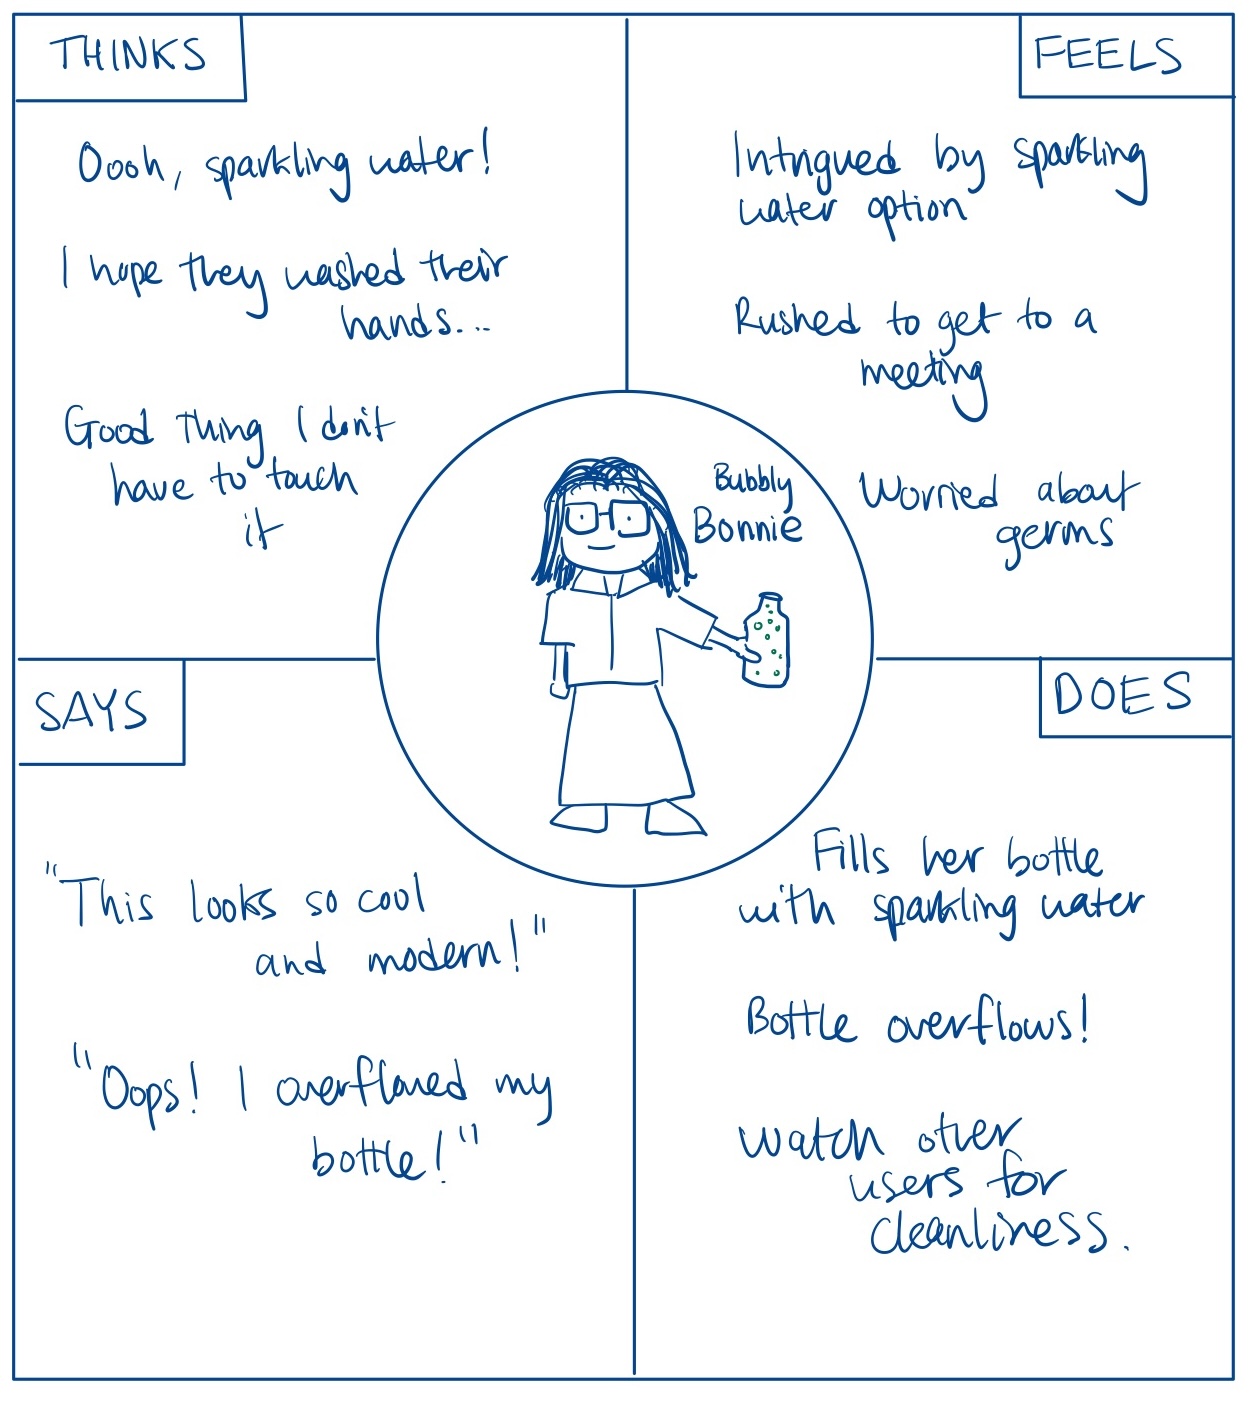 THINKS
Oooh, sparkling water!
I hope they washed their
hands...
Good thing I don't
have to touch
it
FEELS
Intrigued by sparkling
water option
Rushed to get to a
meeting
Worried about
germs
Bubbly
Bonnie
SAYS
"This looks so cool
and modern!"
"Oops! I overflowed my
bottle!"
DOES
Fills her bottle
with sparkling water
Bottle overflows!
Watch other
users for
cleanliness.